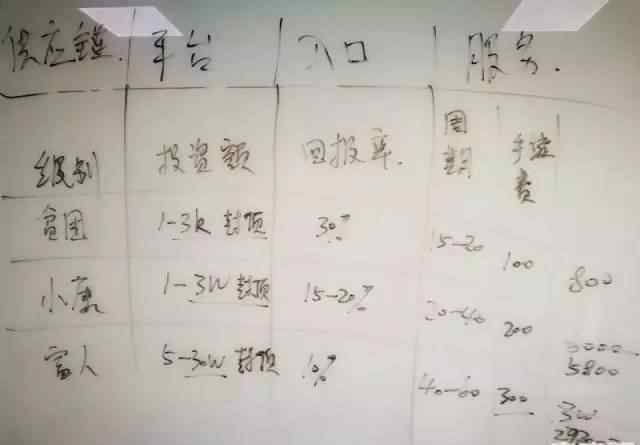 供应链 平台 入口 服务.
级别 投资额 回报率. 周期 手续费
贫困 1-3k 封顶 30% 15-20 100 800
小康 1-3W 封顶 15-20% 20-40 200 5800
富人 5-30W 封顶 10% 40-60 300 30W